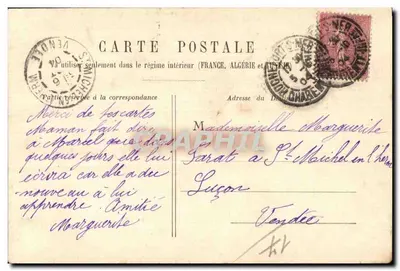 CARTE POSTALE
utilisée seulement dans le régime intérieur (FRANCE, ALGÉRIE et
à la correspondance
Adresse du
Merci de tes cartes
Maman fait dire
à Marcel que
quelques jours elle lui
écrira car elle a du
nouveau à lui
apprendre. Amitié
Marguerite
Mademoiselle Marguerite
Sarat à St Michel en l'herm
Luçon
Vendée
ST MICHEL EN L'HERM
VENDÉE